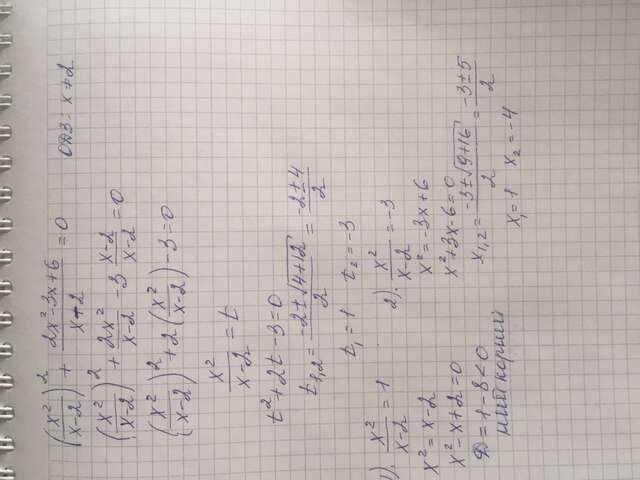 (x²/(x-2))² + (2x²-3x+6)/(x-2) = 0 ОДЗ: x≠2
(x²/(x-2))² + 2x²/(x-2) - 3 (x-2)/(x-2) = 0
(x²/(x-2))² + 2(x²/(x-2)) - 3 = 0
x²/(x-2) = t
t²+2t-3=0
t₁,₂ = (-2±√(4+12))/2 = (-2±4)/2
t₁=1 t₂=-3
1). x²/(x-2) = 1
x²=x-2
x²-x+2=0
D=1-8<0
корний
2). x²/(x-2) = -3
x²=-3x+6
x²+3x-6=0
x₁,₂ = (-3±√(9+16))/2 = (-3±5)/2
x₁=1 x₂=-4